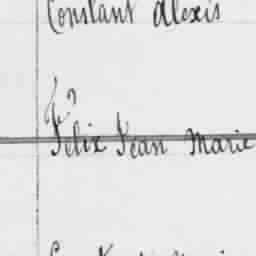 Constant Alexis
Félix Jean Marie